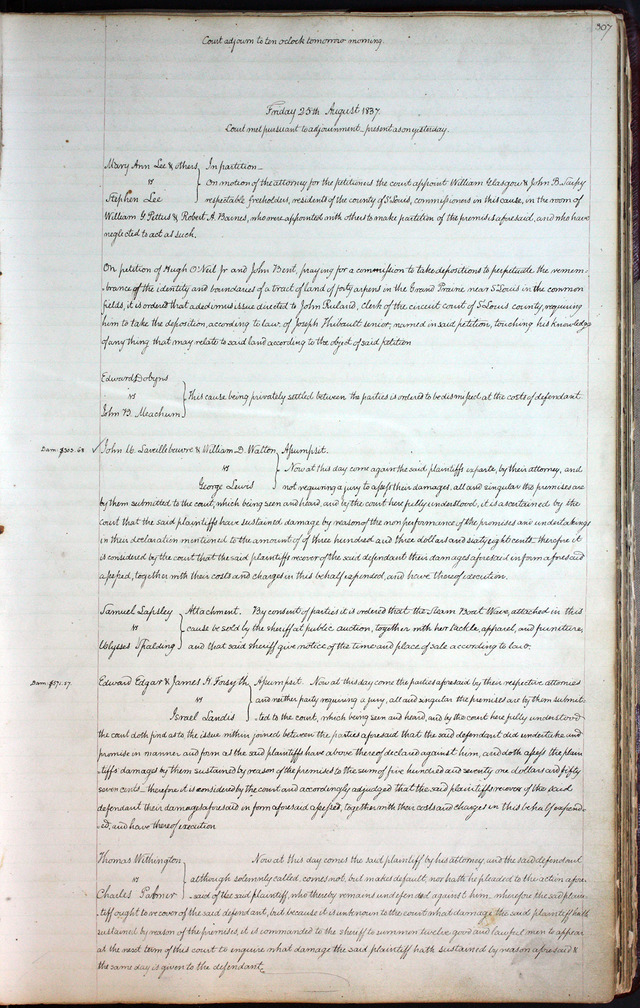 307
Court adjourn to ten o'clock tomorrow morning.
Friday 25th August 1837.
Court met pursuant to adjournment present as on yesterday.
Mary Ann Lee & others In partition
vs On motion of the attorney for the petitioners the court appoint William Glasgow & John B. Sarpy
Stephen Lee respectable freeholders, residents of the county of St Louis, commissioners in this cause, in the room of
William G. Pettus & Robert A. Barnes, who were appointed with others to make partition of the premises aforesaid, and who have
neglected to act as such.
On petition of Hugh O'Neil Jr and John Bent, praying for a commission to take depositions to perpetuate the remem-
-brance of the identity and boundaries of a tract of land of forty arpens in the Grand Prairie near St Louis in the common
fields, it is ordered that a dedimus issue directed to John Ruland, clerk of the circuit court of St Louis county, requiring
him to take the deposition, according to law of Joseph Thibault senior, named in said petition, touching his knowledge
of any thing that may relate to said land according to the object of said petition
Edward Dobyns
vs This cause being privately settled between the parties is ordered to be dismissed at the costs of defendant
John B. Meachum
Dam: $303.68 ✓ John U. Saveillebeuvre & William D. Walton Assumpsit.
vs Now at this day come again the said plaintiffs exparte, by their attorney, and
George Lewis not requiring a jury to assess their damages, all and singular the premises are
by them submitted to the court, which being seen and heard, and by the court here fully understood, it is ascertained by the
court that the said plaintiffs have sustained damage by reason of the non performance of the promises and undertakings
in their declaration mentioned to the amount of of three hundred and three dollars and sixty eight cents therefore it
is considered by the court that the said plaintiffs recover of the said defendant their damages aforesaid in form aforesaid
assessed, together with their costs and charges in this behalf expended, and have thereof execution.
Samuel Lapsley Attachment. By consent of parties it is ordered that the Steam Boat Wave, attached in this
vs cause be sold by the sheriff at public auction, together with her tackle, apparel, and furniture,
Ulysses Spalding and that said sheriff give notice of the time and place of sale according to law.
Dam: $571.57. Edward Edgar & James H. Forsyth Assumpsit. Now at this day come the parties aforesaid by their respective attornies
vs and neither party requiring a jury, all and singular the premises are by them submit-
Israel Landis -ted to the court, which being seen and heard, and by the court here fully understood
the court doth find as to, the issue within joined between the parties aforesaid that the said defendant did undertake and
promise in manner and form as the said plaintiffs have above thereof declared against him, and doth assess the plain-
tiffs damages by them sustained by reason of the premises to the sum of five hundred and seventy one dollars and fifty
seven cents therefore it is considered by the court and accordingly adjudged that the said plaintiffs recover of the said
defendant their damages aforesaid in form aforesaid assessed, together with their costs and charges in this behalf expend-
-ed, and have thereof execution
Thomas Withington Now at this day comes the said plaintiff by his attorney, and the said defendant
vs although solemnly called, comes not, but makes default, nor hath he pleaded to the action afore-
Charles Palmer said of the said plaintiff, who thereby remains undefended against him, wherefore the said plain-
-tiff ought to recover of the said defendant, but because it is unknown to the court what damage the said plaintiff hath
sustained by reason of the premises, it is commanded to the sheriff to summon twelve good and lawful men to appear
at the next term of this court to enquire what damage the said plaintiff hath sustained by reason aforesaid &
the same day is given to the defendant.